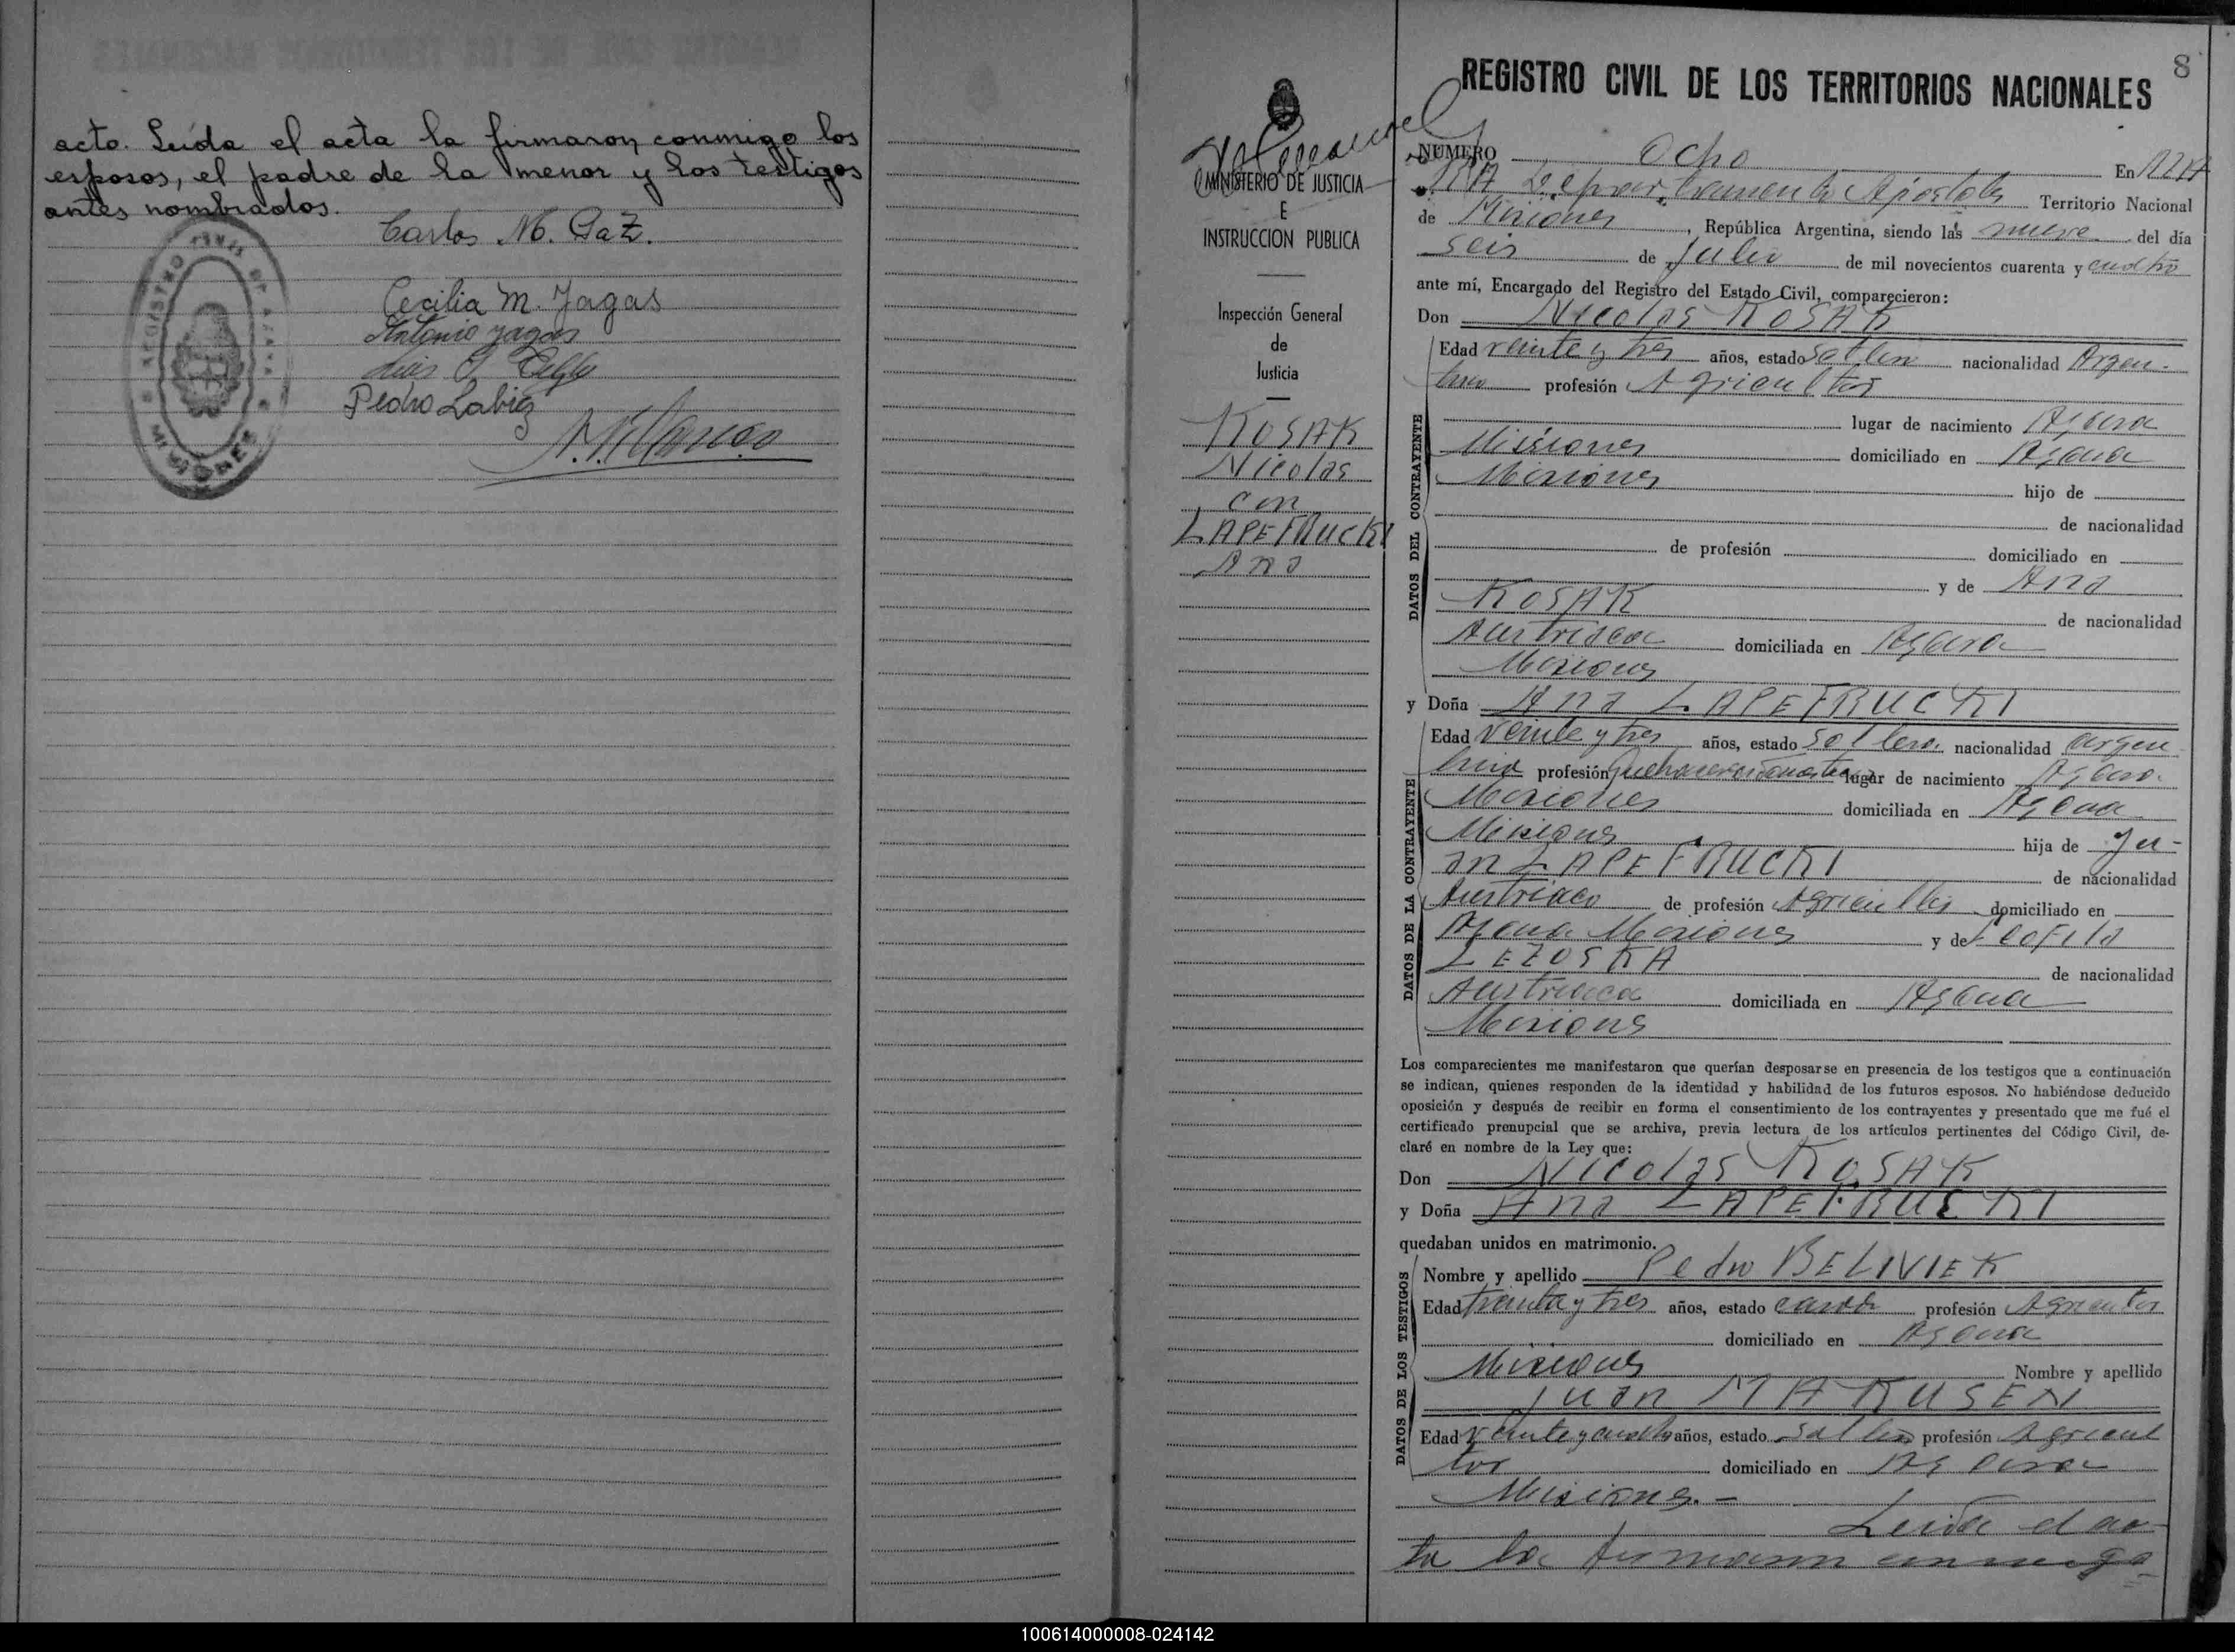 acto. Leída el acta la firmaron conmigo los
esposos, el padre de la menor y los testigos
antes nombrados.
Carlos M. Paz.
Cecilia M. Jagas
Antonio Jagas
Pedro Labiez
MINISTERIO DE JUSTICIA
E
INSTRUCCION PUBLICA
Inspección General
de
Justicia
KOSAK
Nicolas
con
LAPEFRUCKI
Ana
8
REGISTRO CIVIL DE LOS TERRITORIOS NACIONALES
NUMERO Ocho En
Departamento Apóstoles Territorio Nacional
de Misiones, República Argentina, siendo las nueve del día
seis de Julio de mil novecientos cuarenta y cuatro
ante mí, Encargado del Registro del Estado Civil, comparecieron:
Don Nicolas KOSAK
DATOS DEL CONTRAYENTE
Edad veinte y tres años, estado soltero nacionalidad Argen-
tino profesión Agricultor
lugar de nacimiento Azara
Misiones domiciliado en Azara
Misiones hijo de
de nacionalidad
de profesión domiciliado en
y de Ana
KOSAK de nacionalidad
Austriaca domiciliada en Azara
Misiones
y Doña Ana LAPEFRUCKI
DATOS DE LA CONTRAYENTE
Edad veinte y tres años, estado soltera nacionalidad argen
tina profesión lugar de nacimiento Azara
Misiones domiciliada en Azara
Misiones hija de Ju-
an LAPEFRUCKI de nacionalidad
Austriaco de profesión Agricultor domiciliado en
Azara Misiones y de
LEZOSKA de nacionalidad
Austriaca domiciliada en Azara
Misiones
Los comparecientes me manifestaron que querían desposarse en presencia de los testigos que a continuación
se indican, quienes responden de la identidad y habilidad de los futuros esposos. No habiéndose deducido
oposición y después de recibir en forma el consentimiento de los contrayentes y presentado que me fué el
certificado prenupcial que se archiva, previa lectura de los artículos pertinentes del Código Civil, de-
claré en nombre de la Ley que:
Don Nicolas KOSAK
y Doña Ana LAPEFRUCKI
quedaban unidos en matrimonio.
DATOS DE LOS TESTIGOS
Nombre y apellido Pedro BELIVIEK
Edad treinta y tres años, estado casado profesión Agricultor
domiciliado en Azara
Misiones Nombre y apellido
Juan MAKUSEN
Edad veinte y cuatro años, estado soltero profesión Agricul
tor domiciliado en Azara
Misiones.-
Leida el ac-
ta la firmaron conmigo
100614000008-024142